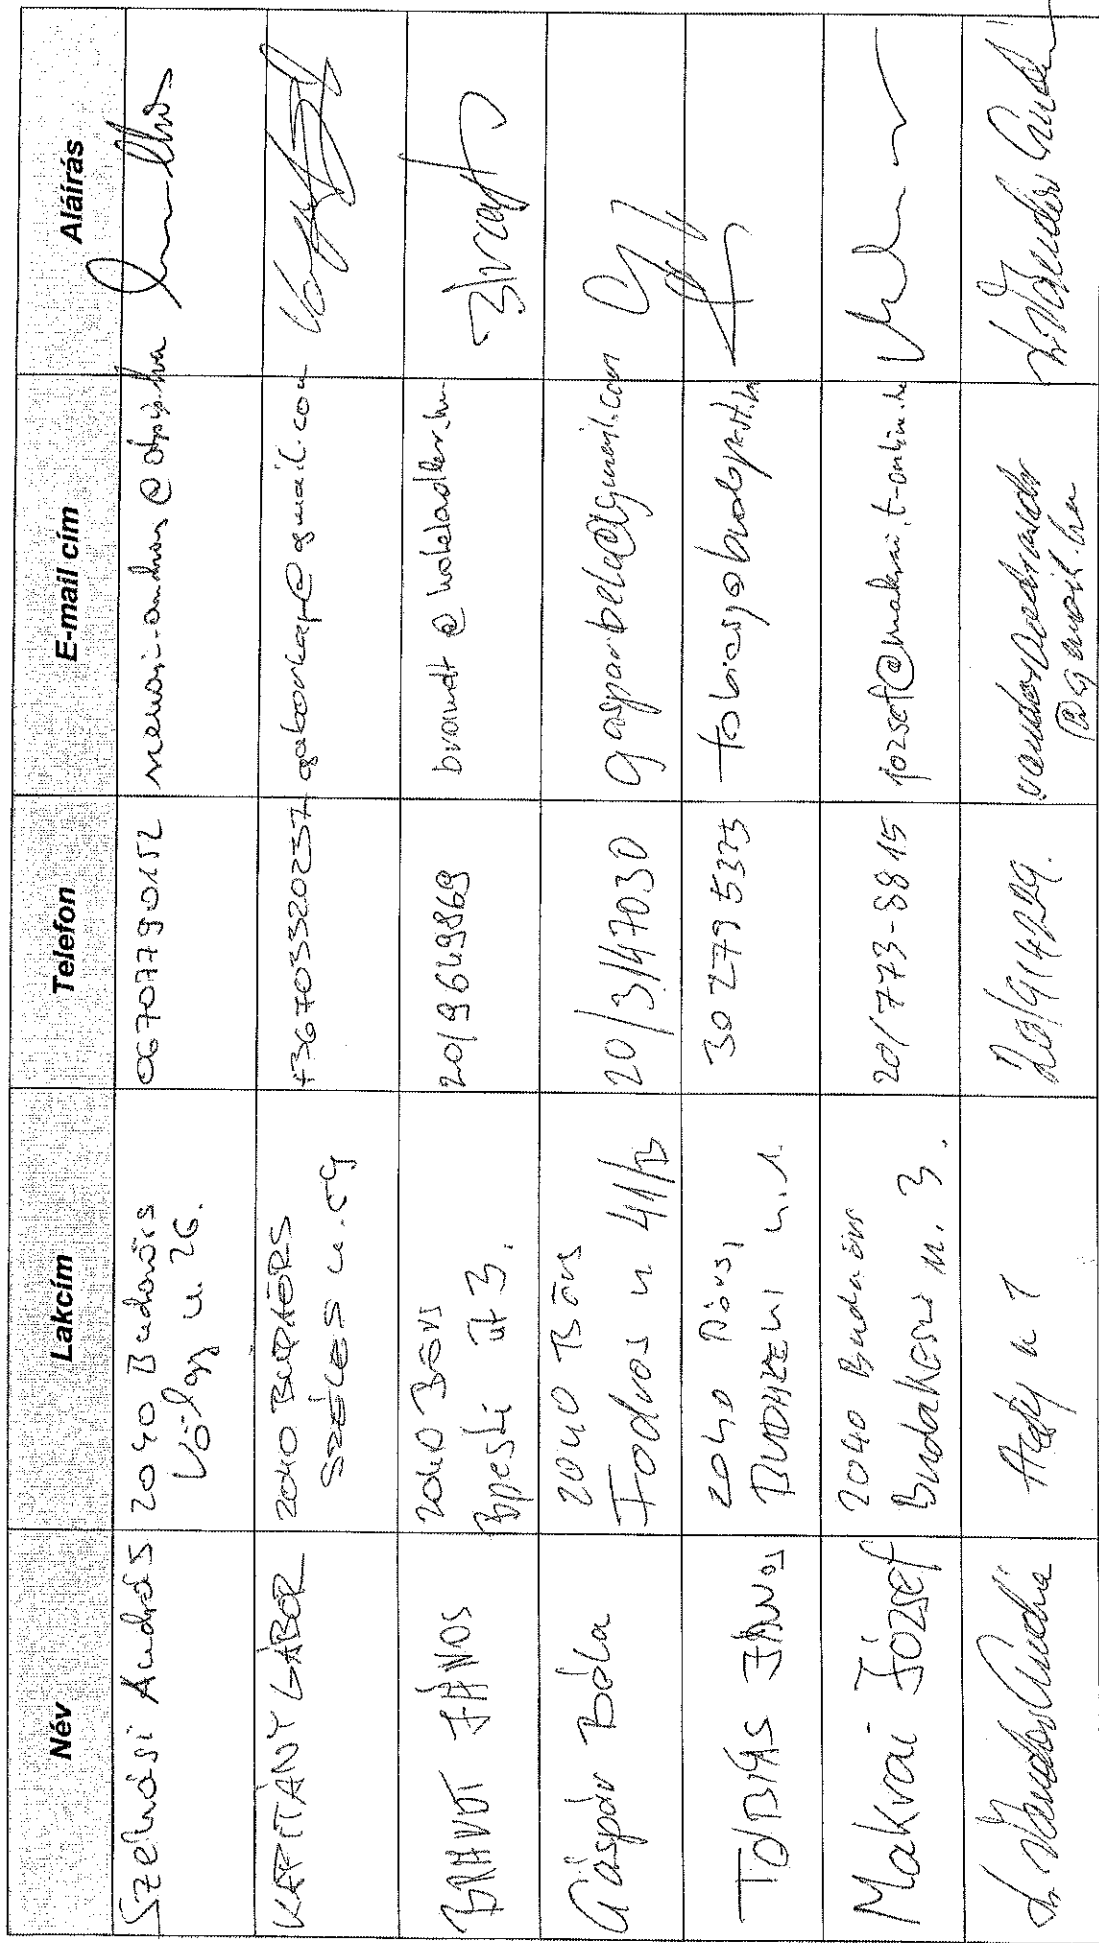 Név Lakcím Telefon E-mail cím Aláírás
2040 Budaörs
Völgy u 26.
06707790152
KAPITÁNY GÁBOR
2040 BUDAÖRS
SZÉLES u. 59
+36703320237
gaborkap@gmail.com
BRANDT JÁNOS
2040 Börs
Bpesti út 3.
20/9649869
brandt@hoteladler.hu
Gáspár Béla
2040 Börs
Fodros u 41/B
20/3147030
gasparbela@gmail.com
TÓBIÁS JÁNOS
2040 Börs,
BUDAKESZI u. 1.
30 2795375
Makrai József
2040 Budaörs
Budakeszi u. 3.
20/773-8815
jozsef@makrai.t-online.hu
Ady u 1
20/9141229.